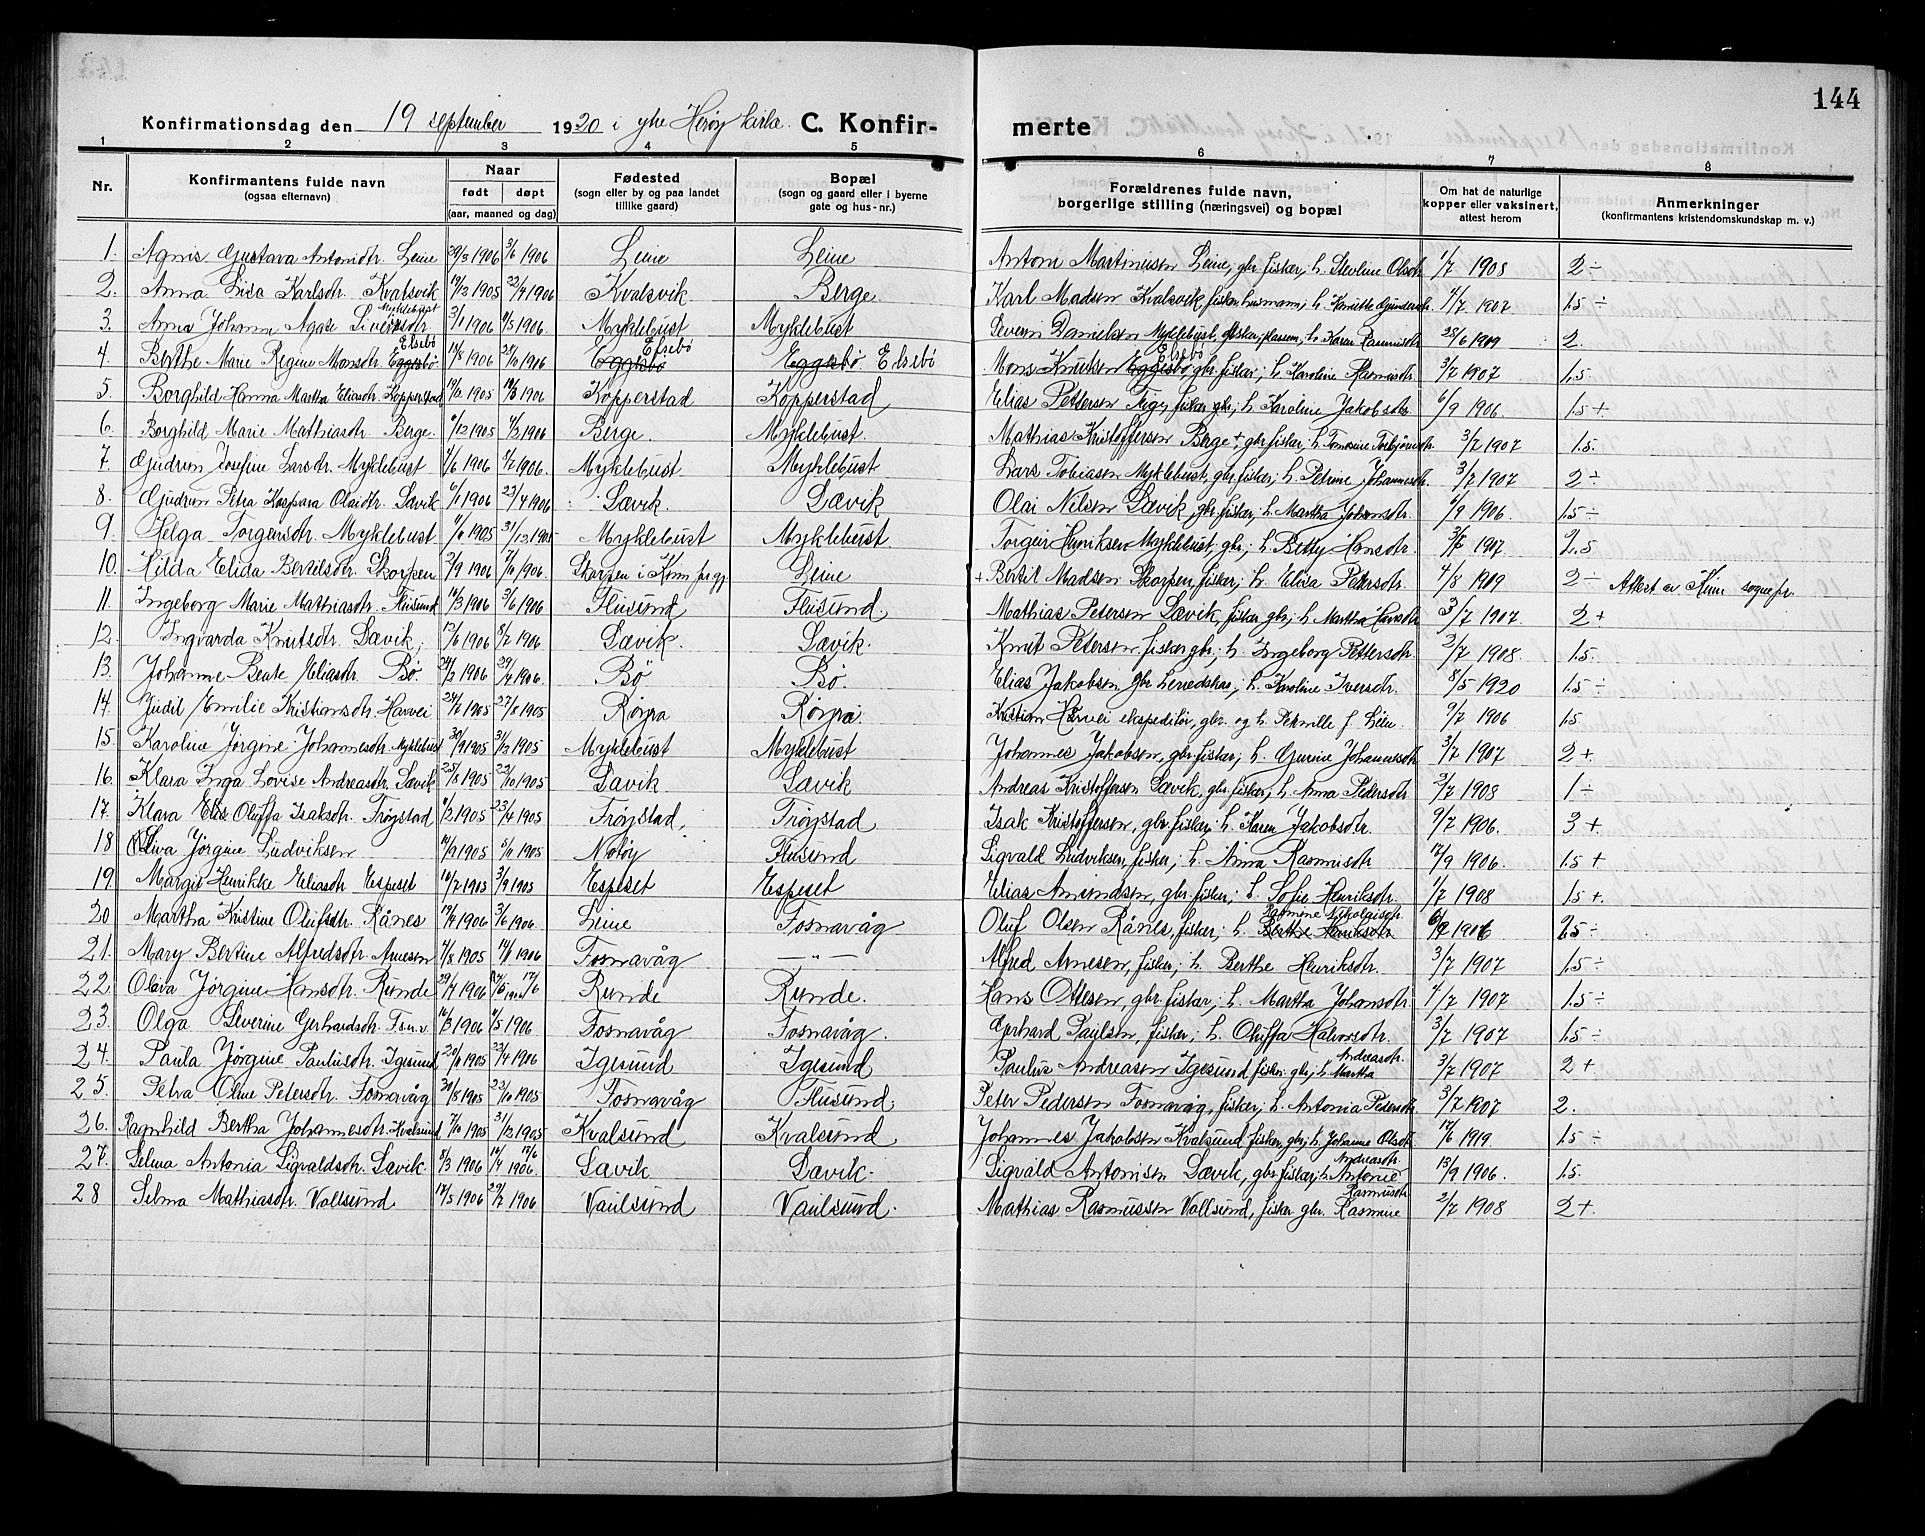 144
Konfirmationsdag den 19 september 1920 i ytre Herøy kirke. C. Konfir-merte
1 2 3 4 5 6 7 8
Nr. Konfirmantens fulde navn (ogsaa efternavn) Naar født døpt (aar, maaned og dag) Fødested (sogn eller by og paa landet tillike gaard) Bopæl (sogn og gaard eller i byerne gate og hus-nr.) Forældrenes fulde navn, borgerlige stilling (næringsvei) og bopæl Om hat de naturlige kopper eller vaksinert, attest herom Anmerkninger (konfirmantens kristendomskundskap m. v.)
1. Agnis Gustava Antonidtr. Leine 29/3 1906 3/6 1906 Leine Leine Antoni Martinusen Leine, gbr. fisker, h. Stevline Olsdtr. 1/7 1908 2 ÷
2. Anna Lisa Karlsdtr. Kvalsvik 19/12 1905 22/4 1906 Kvalsvik Berge Karl Madsen Kvalsvik, fisker, husmann, h. Knutte Gundersdtr. 4/7 1907. 1.5 ÷
3. Anna Johanna Agate Siverinsdtr. Myklebust 3/1 1906 4/3 1906. Myklebust Myklebust Severin Danielsen Myklebust, fisker, plassem., h. Karen Rasmusdtr. 25/6 1909 2.
4. Berthe Marie Regine Monsdtr. Eggesbø Elsebø 14/8 1906 28/10 1906 Eggesbø Elsebø Eggesbø Elsebø Mons Knutsen Eggesbø Elsebø, gbr. fisker, h. Karoline Rasmusdtr. 3/7 1907 1.5
5. Borghild Hanna Martha Eliasdtr. Kopperstad 19/12 1905 18/3 1906 Kopperstad Kopperstad Elias Pettersen Teige, fisker gbr; h. Karoline Jakobsdtr. 6/9 1906. 1.5 +
6. Borghild Marie Mathiasdtr. Berge. 6/12 1905 4/3 1906 Berge. Myklebust. Mathias Kristoffersen Berge +, gbr. fisker, h. Tomsine Torbjørnsdtr. 3/7 1907 1.5.
7. Gudrun Josefine Larsdtr. Myklebust 7/6 1906 1/7 1906. Myklebust Myklebust Lars Tobiasen Myklebust, gbr. fisker; h. Petrine Johannesdtr. 3/7 1907 2 ÷
8. Gudrun Petra Kaspara Olaidtr. Sævik 6/1 1906 23/4 1906 Sævik. Sævik Olai Nilsen Sævik, gbr. fisker, h. Martha Johansdtr. 6/9 1906. 1.5 ÷
9. Helga Torgeirsdtr. Myklebust 4/10 1905 31/12 1905 Myklebust Myklebust. Torgeir Henriksen Myklebust, gbr; h. Betty Hansdtr. 3/7 1907. 2.5
10. Hilda Elida Bertilsdtr. Skorpen 2/9 1906 7/10 1906 Skorpen i Kinn prgj. Leine + Bertil Madsen Skorpen, fisker; h. Elisa Petersdtr. 4/8 1909 2 ÷ Attest av Kinn sognepr.
11. Ingeborg Marie Mathiasdtr. Flusund 14/3 1906 3/6 1906 Flusund Flusund. Mathias Petersen Sævik, fisker gbr; h. Martha Hansdtr. 3/7 1907. 2 +
12. Ingvarda Knutsdtr. Sævik, 13/6 1906 8/7 1906 Sævik. Sævik. Knut Petersen, fisker gbr.; h. Ingeborg Pettersdtr. 2/7 1908. 1.5.
13. Johanne Beate Eliasdtr. Bø 24/2 1906 29/4 1906. Bø Bø. Elias Jakobsen gbr herredskas., h. Karoline Iversdtr. 8/5 1920 1.5 ÷
14. Judit Emilie Kristiansdtr. Harvei 24/7 1905 27/8 1905 Røyra Røyra Kristian Harvei ekspeditør, gbr. og h. Peknille f. Lien. 9/7 1906 1.5
15. Karoline Jørgine Johannesdtr. Myklebust 30/9 1905 31/12 1905 Myklebust Myklebust Johannes Jakobsen, gbr. fisker; h. Gurine Johannesdtr. 3/7 1907 2 +
16. Klara Inga Lovise Andreasdtr. Sævik 25/8 1905 22/10 1905 Sævik Sævik Andreas Kristoffersen Sævik, gbr. fisker, h. Anna Pedersdtr. 3/7 1908 1 ÷
17. Klara Else Oluffa Isaksdtr. Frøystad 4/2 1905 23/4 1905 Frøystad, Frøystad Isak Kristoffersen, gbr. fisker, h. Karen Jakobsdtr. 9/7 1906. 3 +.
18 Liva Jørgine Ludviksen 14/9 1905 5/11 1905 Notøy Flusund Sigvald Ludviksen, fisker, h. Anna Rasmusdtr 12/9 1906. 1.5 +
19. Margit Henrikke Eliasdtr. Espeset 16/7 1905 3/9 1905 Espeset Espeset Elias Amundsen, gbr. fisker; h. Sofie Henriksdtr. 1/7 1908 1.5 +.
20. Martha Kristine Olufsdtr. Rånes 19/4 1906 3/6 1906. Leine Fosnavåg Oluf Olsen Rånes, fisker; h. Berthe Henriksdtr. Rasmine Nikolaisdtr. 6/9 1906 2.5 ÷
21. Mary Bertine Alfredsdtr. Arnesen 4/8 1905 14/1 1906 Fosnavåg —„— Alfred Arnesen, fisker; h. Berthe Henriksdtr. 3/7 1907 1.5 ÷
22. Olava Jørgine Hansdtr. Runde 29/4 1906 24/5 1906 17/6 Runde Runde. Hans Ottesen, gbr. fisker; h. Martha Johansdtr. 4/7 1907 1.5 ÷
23. Olga Severine Gerhardsdtr. Fsn.v. 16/3 1906 6/5 1906 Fosnavåg Fosnavåg. Gerhard Paulsen, fisker; h. Oluffa Halvorsdtr. 3/7 1907 1.5 ÷
24. Paula Jørgine Paulusdtr. Igesund 20/11 1905 23/4 1906 Igesund Igesund Paulus Andreasen Igesund fisker gbr; h. Martha Andreasdtr. 3/7 1907 2 +
25. Petra Oline Petersdtr. Fosnavåg 30/8 1905 22/10 1905 Fosnavåg Flusund, Peter Pedersen Fosnavåg, fisker, h. Antonia Pedersdtr. 3/7 1907 2.
26. Ragnhild Bertha Johannesdtr. Kvalsund 7/10 1905 31/12 1905 Kvalsund Kvalsund Johannes Jakobsen Kvalsund fisker, gbr; h. Johanne Olsdtr. 17/6 1919. 1.5 ÷
27. Selma Antonia Sigvaldsdtr. Sævik. 8/3 1906 14/4 17/6 1906 Sævik Sævik. Sigvald Antonisen Sævik, gbr. fisker, h. Antonie Andreasdtr. 13/9 1906. 1.5.
28 Selma Mathiasdtr. Vollsund 17/5 1906 29/7 1906 Vaulsund Vaulsund. Mathias Rasmussen Vollsund, fisker gbr. Rasmine Rasmusdtr. 2/7 1908 2 +.